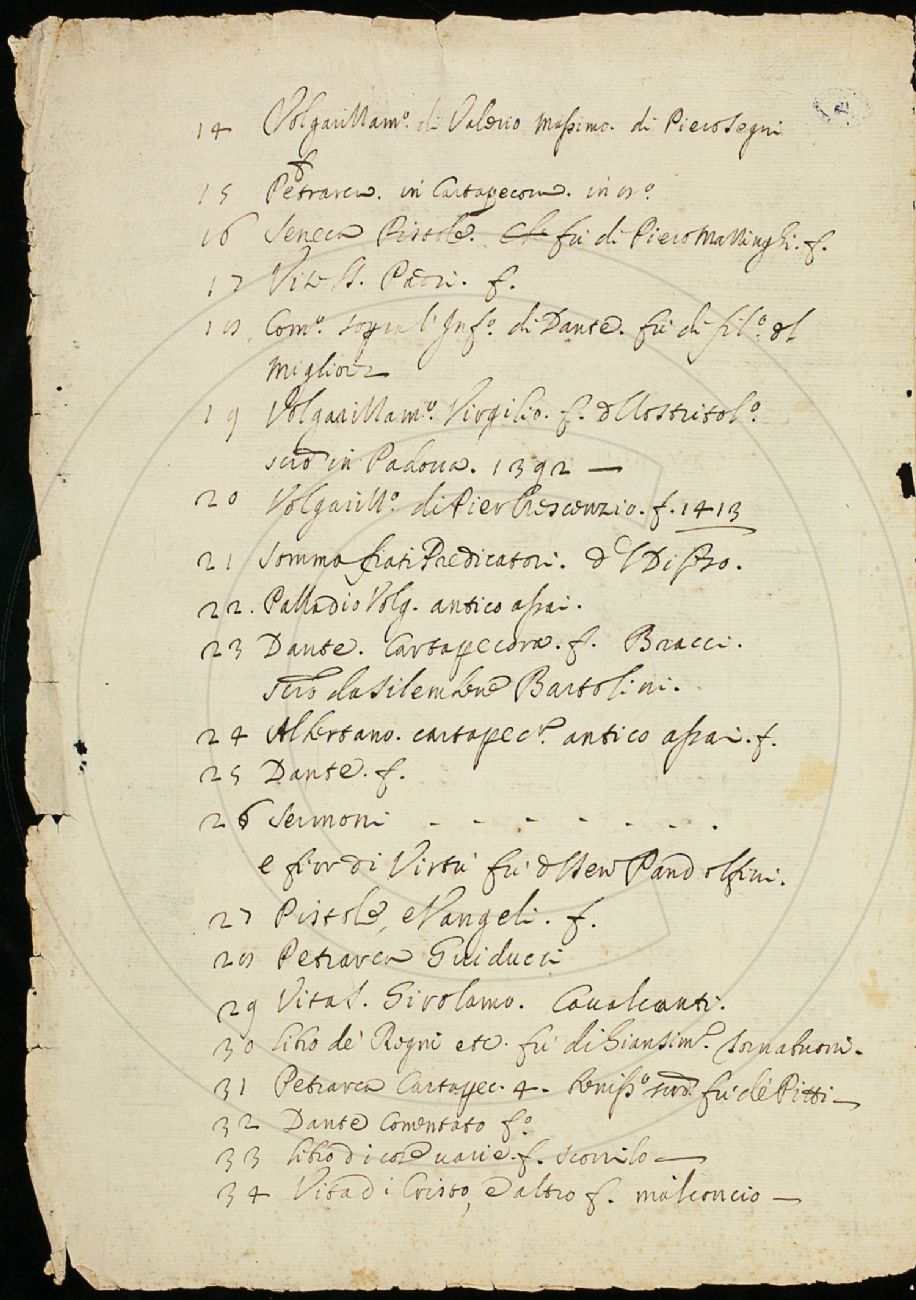 14 Volgarizzam.º di Valerio Massimo. di Piero Segni
f
15 Petrarca. in Cartapecora. in 8.º
16 Seneca Pistole. che fu di Piero Martinghi. f.
17 Vite SS. Padri. f.
18 Com.º sopra l'Inf.º di Dante. fu di fil.º del
Migliore
19 Volgarizzam.º Virgilio. f. dello Stritol.º
scrō in Padova. 1392 —
20 Volgarizz.º di Pier Crescenzio. f. 1413
21 Somma frati Predicatori. del
22. Palladio Volg. antico assai.
23 Dante. Cartapecora. f. Bracci.
scrō da Bartolini.
24 Albertano. cartapec.ª antico assai. f.
25 Dante. f.
26 Sermoni - - - - - - .
e fior di Virtù fu del Sen Pandolfini.
27 Pistole, e Vangeli. f.
28 Petrarca Guiducci
29 Vita S. Girolamo. Cavalcanti.
30 libro de' Regni etc. fu di Giansim.e Tornabuoni.
31 Petrarca Cartapec. 4. beniss.º scrō fu de' Pitti —
32 Dante Comentato f.º
33 libro di cose varie. f. scorrilo —
34 Vita di Cristo, e altro f. malconcio —